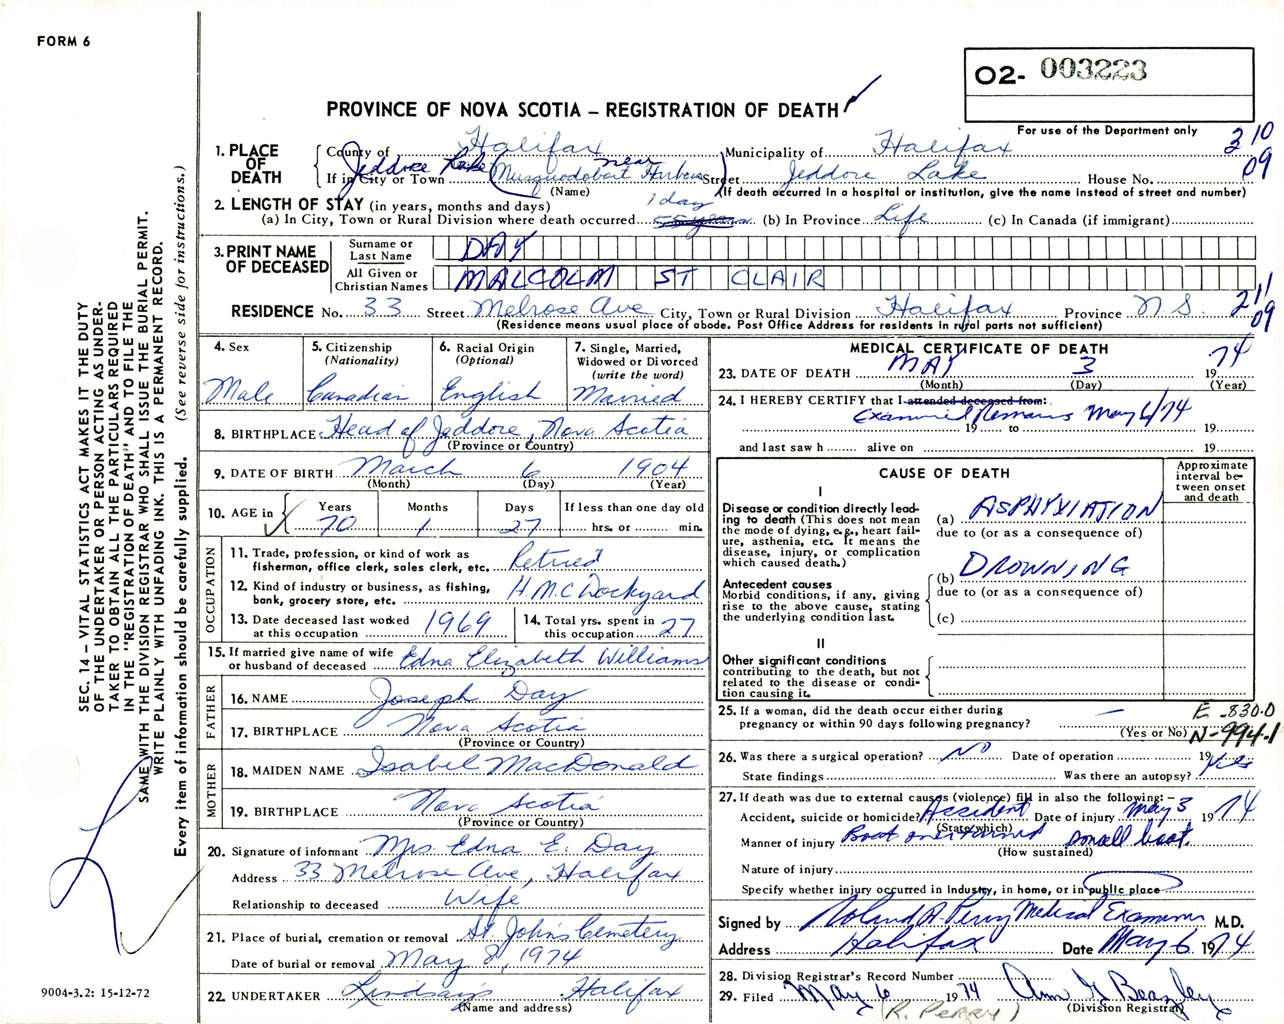 FORM 6
O2- 003223
PROVINCE OF NOVA SCOTIA – REGISTRATION OF DEATH
For use of the Department only
210
09
1. PLACE OF DEATH
County of Halifax Municipality of Halifax
Jeddore Lake near
If in City or Town (Musquodoboit Harbour) Street Jeddore Lake House No.
(Name) (If death occurred in a hospital or institution, give the name instead of street and number)
2. LENGTH OF STAY (in years, months and days) 1 day
(a) In City, Town or Rural Division where death occurred (b) In Province Life (c) In Canada (if immigrant)
3. PRINT NAME OF DECEASED
Surname or Last Name DAY
All Given or Christian Names MALCOLM ST CLAIR
RESIDENCE No. 33 Street Melrose Ave City, Town or Rural Division Halifax Province N.S. 211
09
(Residence means usual place of abode. Post Office Address for residents in rural parts not sufficient)
4. Sex
Male
5. Citizenship
(Nationality)
Canadian
6. Racial Origin
(Optional)
English
7. Single, Married, Widowed or Divorced
(write the word)
Married
8. BIRTHPLACE Head of Jeddore, Nova Scotia
(Province or Country)
9. DATE OF BIRTH March 6 1904
(Month) (Day) (Year)
10. AGE in Years Months Days If less than one day old
70 1 27 hrs. or min.
OCCUPATION
11. Trade, profession, or kind of work as
fisherman, office clerk, sales clerk, etc. Retired
12. Kind of industry or business, as fishing,
bank, grocery store, etc. H.M.C Dockyard
13. Date deceased last worked
at this occupation 1969
14. Total yrs. spent in
this occupation 27
15. If married give name of wife
or husband of deceased Edna Elizabeth Williams
FATHER
16. NAME Joseph Day
17. BIRTHPLACE Nova Scotia
(Province or Country)
MOTHER
18. MAIDEN NAME Isabel MacDonald
19. BIRTHPLACE Nova Scotia
(Province or Country)
20. Signature of informant Mrs. Edna E. Day
Address 33 Melrose Ave, Halifax
Relationship to deceased Wife
21. Place of burial, cremation or removal St. John's Cemetery
Date of burial or removal May 8, 1974
22. UNDERTAKER Lindsay's Halifax
(Name and address)
MEDICAL CERTIFICATE OF DEATH
23. DATE OF DEATH MAY 3 1974
(Month) (Day) (Year)
24. I HEREBY CERTIFY that I attended deceased from:
Examined Remains May 6/74
19 to 19
and last saw h alive on 19
CAUSE OF DEATH
Approximate interval between onset and death
I
Disease or condition directly lead-
ing to death (This does not mean
the mode of dying, e.g., heart fail-
ure, asthenia, etc. It means the
disease, injury, or complication
which caused death.)
(a) ASPHYXIATION
due to (or as a consequence of)
Antecedent causes
Morbid conditions, if any, giving
rise to the above cause, stating
the underlying condition last.
(b) DROWNING
due to (or as a consequence of)
(c)
II
Other significant conditions
contributing to the death, but not
related to the disease or condi-
tion causing it.
25. If a woman, did the death occur either during
pregnancy or within 90 days following pregnancy? –
(Yes or No)
E-830.0
N-994.1
26. Was there a surgical operation? NO Date of operation 19
State findings Was there an autopsy? Yes
27. If death was due to external causes (violence) fill in also the following: –
Accident, suicide or homicide? Accident Date of injury May 3 1974
(State which)
Manner of injury Boat overturned small boat.
(How sustained)
Nature of injury
Specify whether injury occurred in Industry, in home, or in public place
Signed by Roland A. Perry Medical Examiner M.D.
Address Halifax Date May 6 1974
28. Division Registrar's Record Number
29. Filed May 6 1974 Ann G Beazley
(R. PERRY) (Division Registrar)
SEC. 14 – VITAL STATISTICS ACT MAKES IT THE DUTY
OF THE UNDERTAKER OR PERSON ACTING AS UNDER-
TAKER TO OBTAIN ALL THE PARTICULARS REQUIRED
IN THE "REGISTRATION OF DEATH" AND TO FILE THE
SAME WITH THE DIVISION REGISTRAR WHO SHALL ISSUE THE BURIAL PERMIT.
WRITE PLAINLY WITH UNFADING INK. THIS IS A PERMANENT RECORD.
Every item of information should be carefully supplied. (See reverse side for instructions.)
9004-3.2: 15-12-72